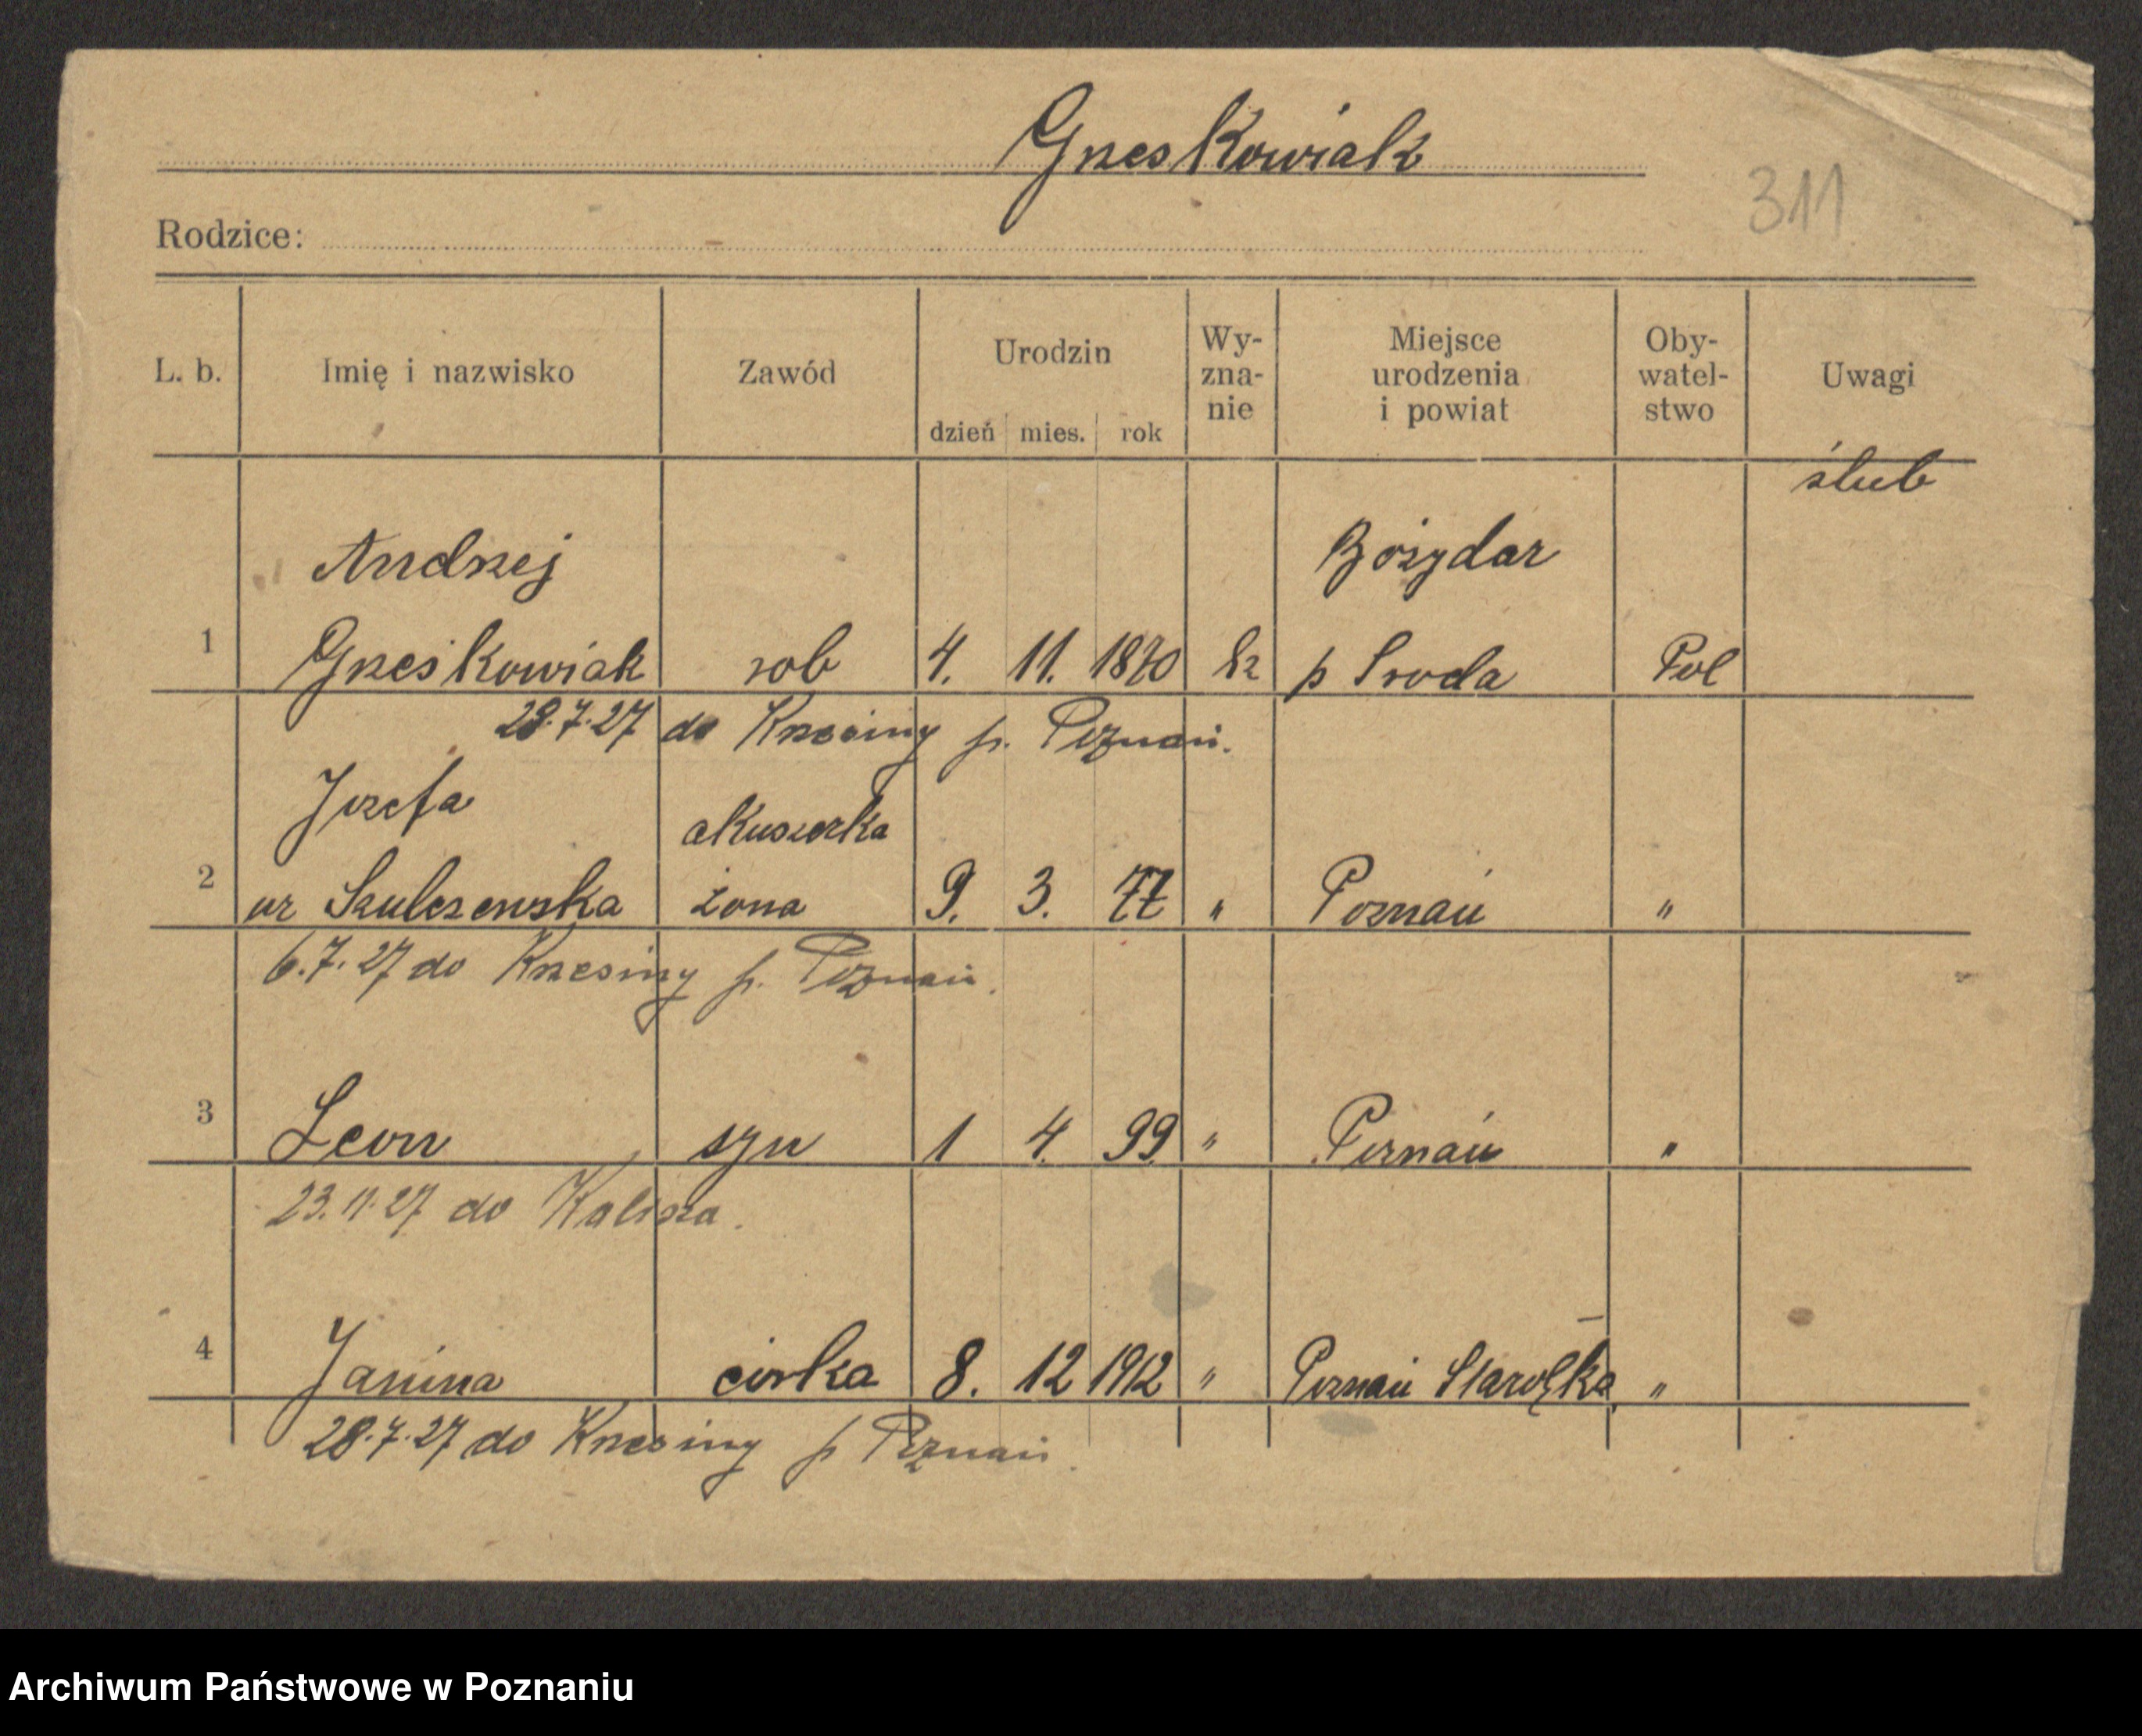 Grześkowiak
311
Rodzice:
L. b. Imię i nazwisko Zawód Urodzin dzień mies. rok Wy-zna-nie Miejsce urodzenia i powiat Oby-watel-stwo Uwagi
ślub
Andrzej Bożydar
1 Grześkowiak rob 4. 11. 1870 k p Sroda Pol
28.7.27 do Krzesiny p. Poznań.
Jozefa akuszerka
2 ur Szulczewska żona 9. 3. 77 " Poznań "
6.7.27 do Krzesiny p. Poznań.
3 Leon syn 1 4. 99. " Poznań "
23.11.27 do Kalisza.
4 Janina córka 8. 12 1912 " Poznań Starołęka "
28.7.27 do Krzesiny p Poznań
Archiwum Państwowe w Poznaniu